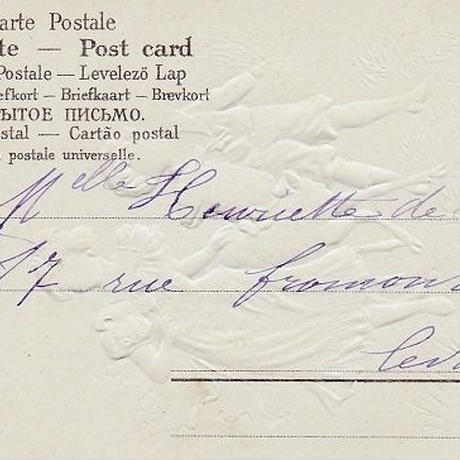 arte Postale
te — Post card
Postale — Levelező Lap
efkort — Briefkaart — Brevkort
ЫТОЕ ПИСЬМО.
stal — Cartão postal
postale universelle.
Melle Henriette de
17 rue fromon
leva